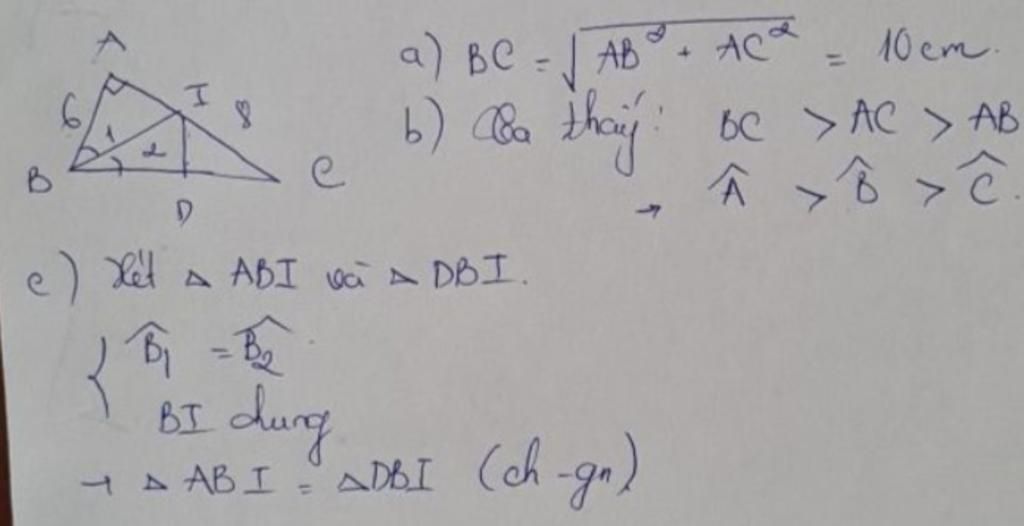 A
6
I
8
1
2
B
D
C
a) BC = √(AB² + AC²) = 10cm.
b) Ta thấy: BC > AC > AB
→ Â > B̂ > Ĉ.
c) Xét △ ABI và △ DBI.
{ B̂₁ = B̂₂
BI chung
→ △ ABI = △DBI (ch-gn)